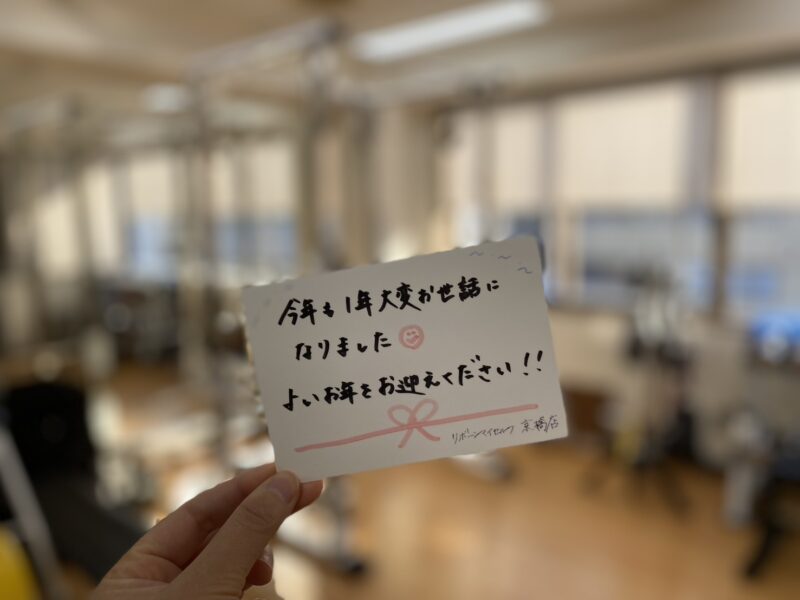 今年も1年大変お世話に
なりました
よいお年をお迎えください!!
リボーンマイセルフ 京橋店